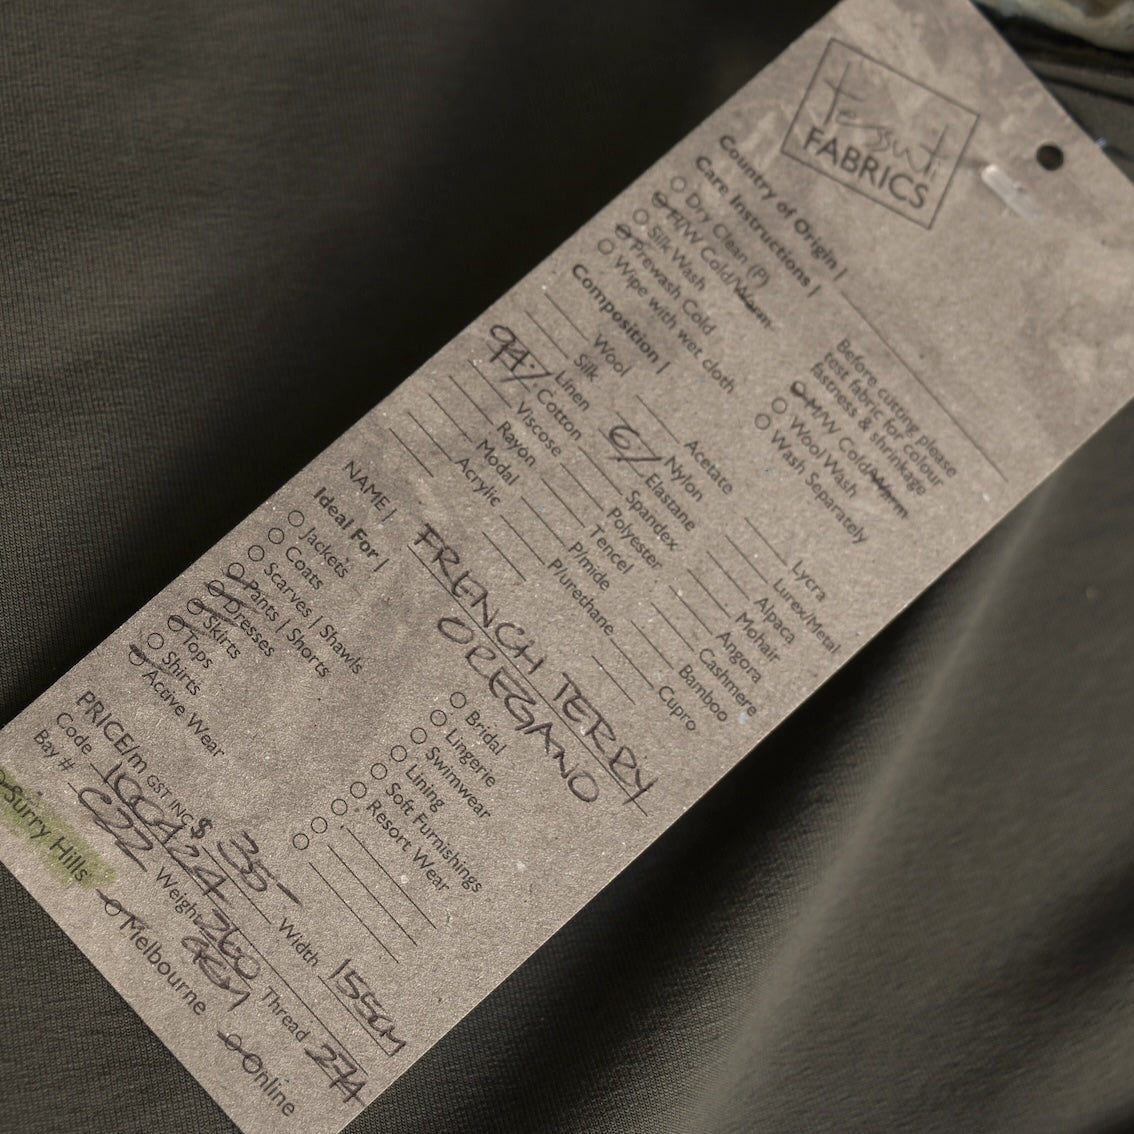 tessuti
FABRICS
Country of Origin |
Care Instructions |
Dry Clean (P)
H/W Cold/Warm
Silk Wash
Prewash Cold
Wipe with wet cloth
Before cutting please
test fabric for colour
fastness & shrinkage
M/W Cold/Warm
Wool Wash
Wash Separately
Composition |
Wool
Silk
Linen
94% Cotton
Viscose
Rayon
Modal
Acrylic
Acetate
Nylon
6% Elastane
Spandex
Polyester
Tencel
P/mide
P/urethane
Lycra
Lurex/Metal
Alpaca
Mohair
Angora
Cashmere
Bamboo
Cupro
NAME | FRENCH TERRY
OREGANO
Ideal For |
Jackets
Coats
Scarves | Shawls
Pants | Shorts
Dresses
Skirts
Tops
Shirts
Active Wear
Bridal
Lingerie
Swimwear
Lining
Soft Furnishings
Resort Wear
PRICE/m GST INC $ 35- Width 155CM
Code 1004424 Weight 260 GSM Thread 274
Bay # C22
Surry Hills Melbourne Online